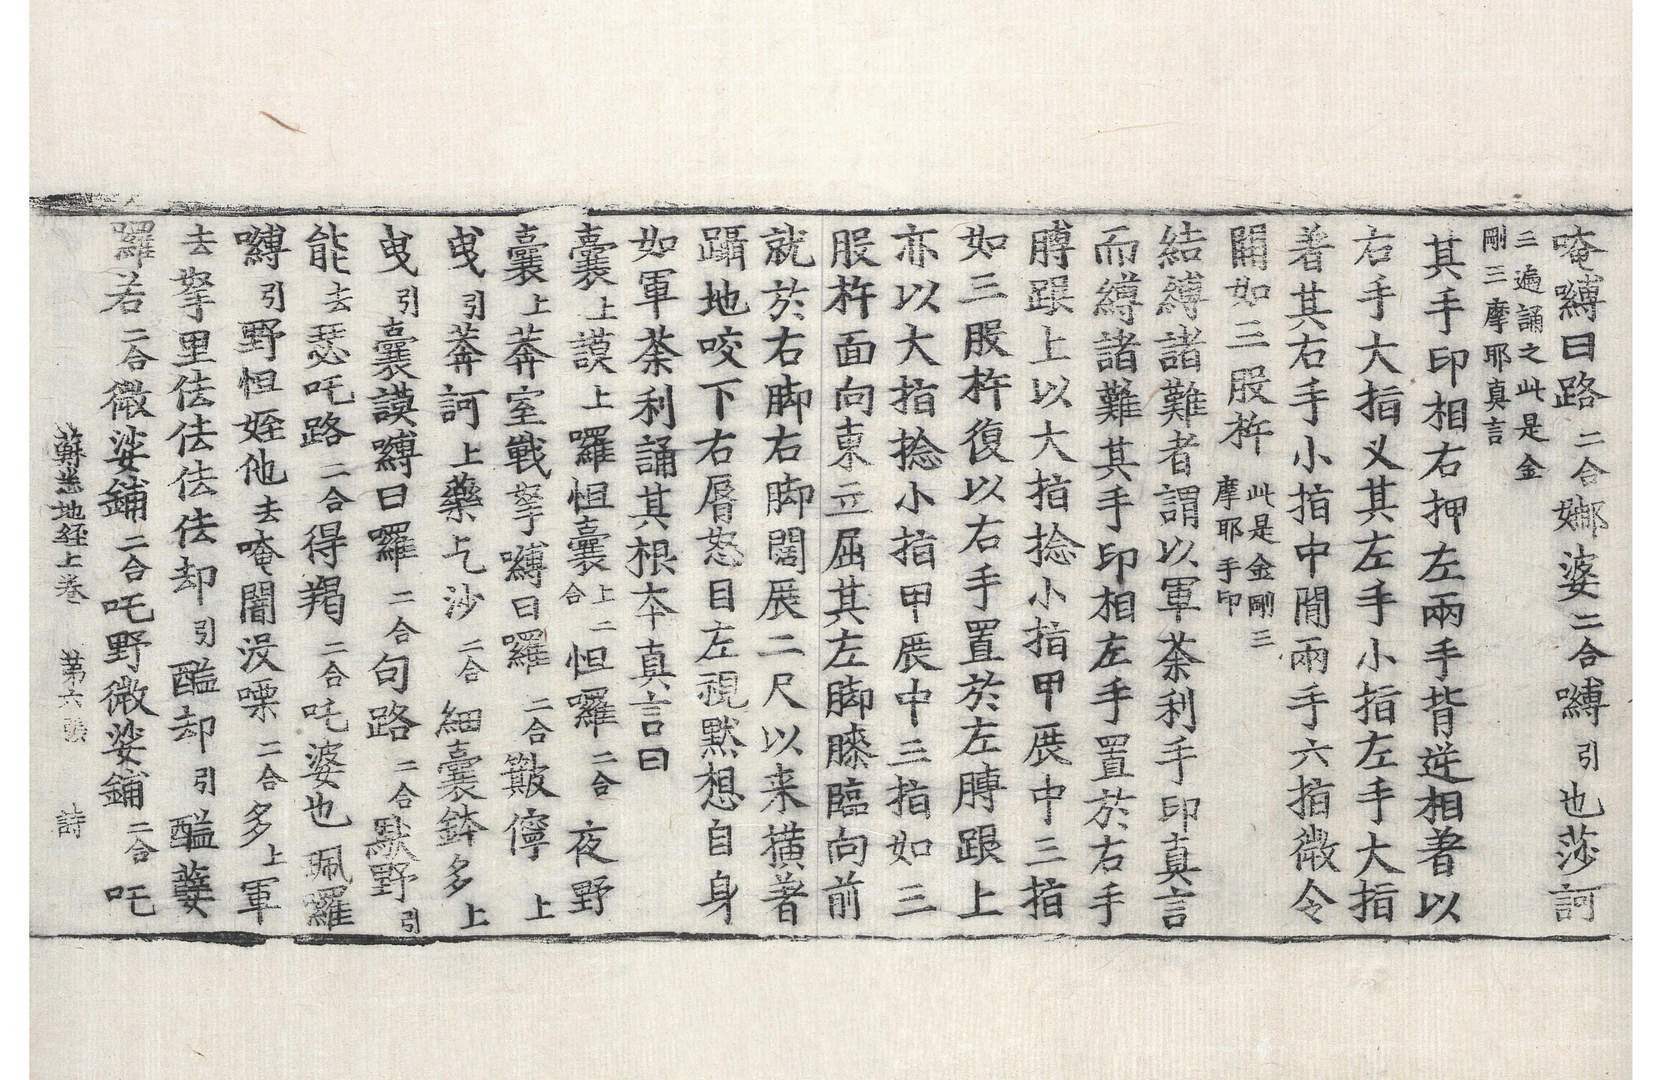 唵嚩曰路二合娜婆二合嚩引也莎訶
三遍誦之此是金
剛三摩耶真言
其手印相右押左兩手背逆相著以
右手大指叉其左手小指左手大指
著其右手小指中間兩手六指微令
開如三股杵此是金剛三
摩耶手印
結縛諸難者謂以軍荼利手印真言
而縛諸難其手印相左手置於右手
膊跟上以大指捻小指甲展中三指
如三股杵復以右手置於左膊跟上
亦以大指捻小指甲展中三指如三
股杵面向東立屈其左脚膝臨向前
就於右脚右脚闊展二尺以来撗著
躡地咬下右脣怒目左視默想自身
如軍荼利誦其根夲真言曰
曩上謨上囉怛曩上二合怛囉二合夜野
曩上莾室戰拏嚩曰囉二合皺儜上
曳引莾訶上藥乞沙二合細曩鉢多上
曳引曩謨嚩曰囉二合句路二合馱野引
能去瑟吒路二合得羯二合吒婆也珮囉
嚩引野怛姪他去唵闇沒㗚二合多上軍
去拏里佉佉佉佉却引醯却引醯蘡
囉若二合微娑鋪二合吒野微娑鋪二合吒
蘇悉地経上卷　第六張　詩